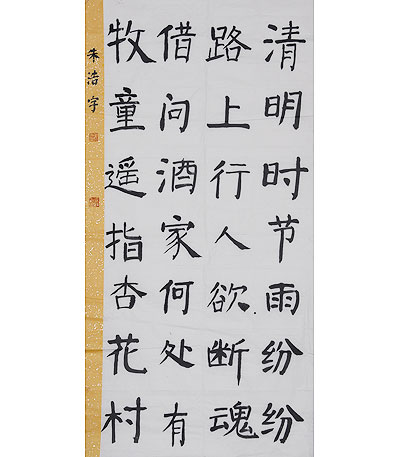 清明时节雨纷纷
路上行人欲断魂
借问酒家何处有
牧童遥指杏花村
朱浩宇